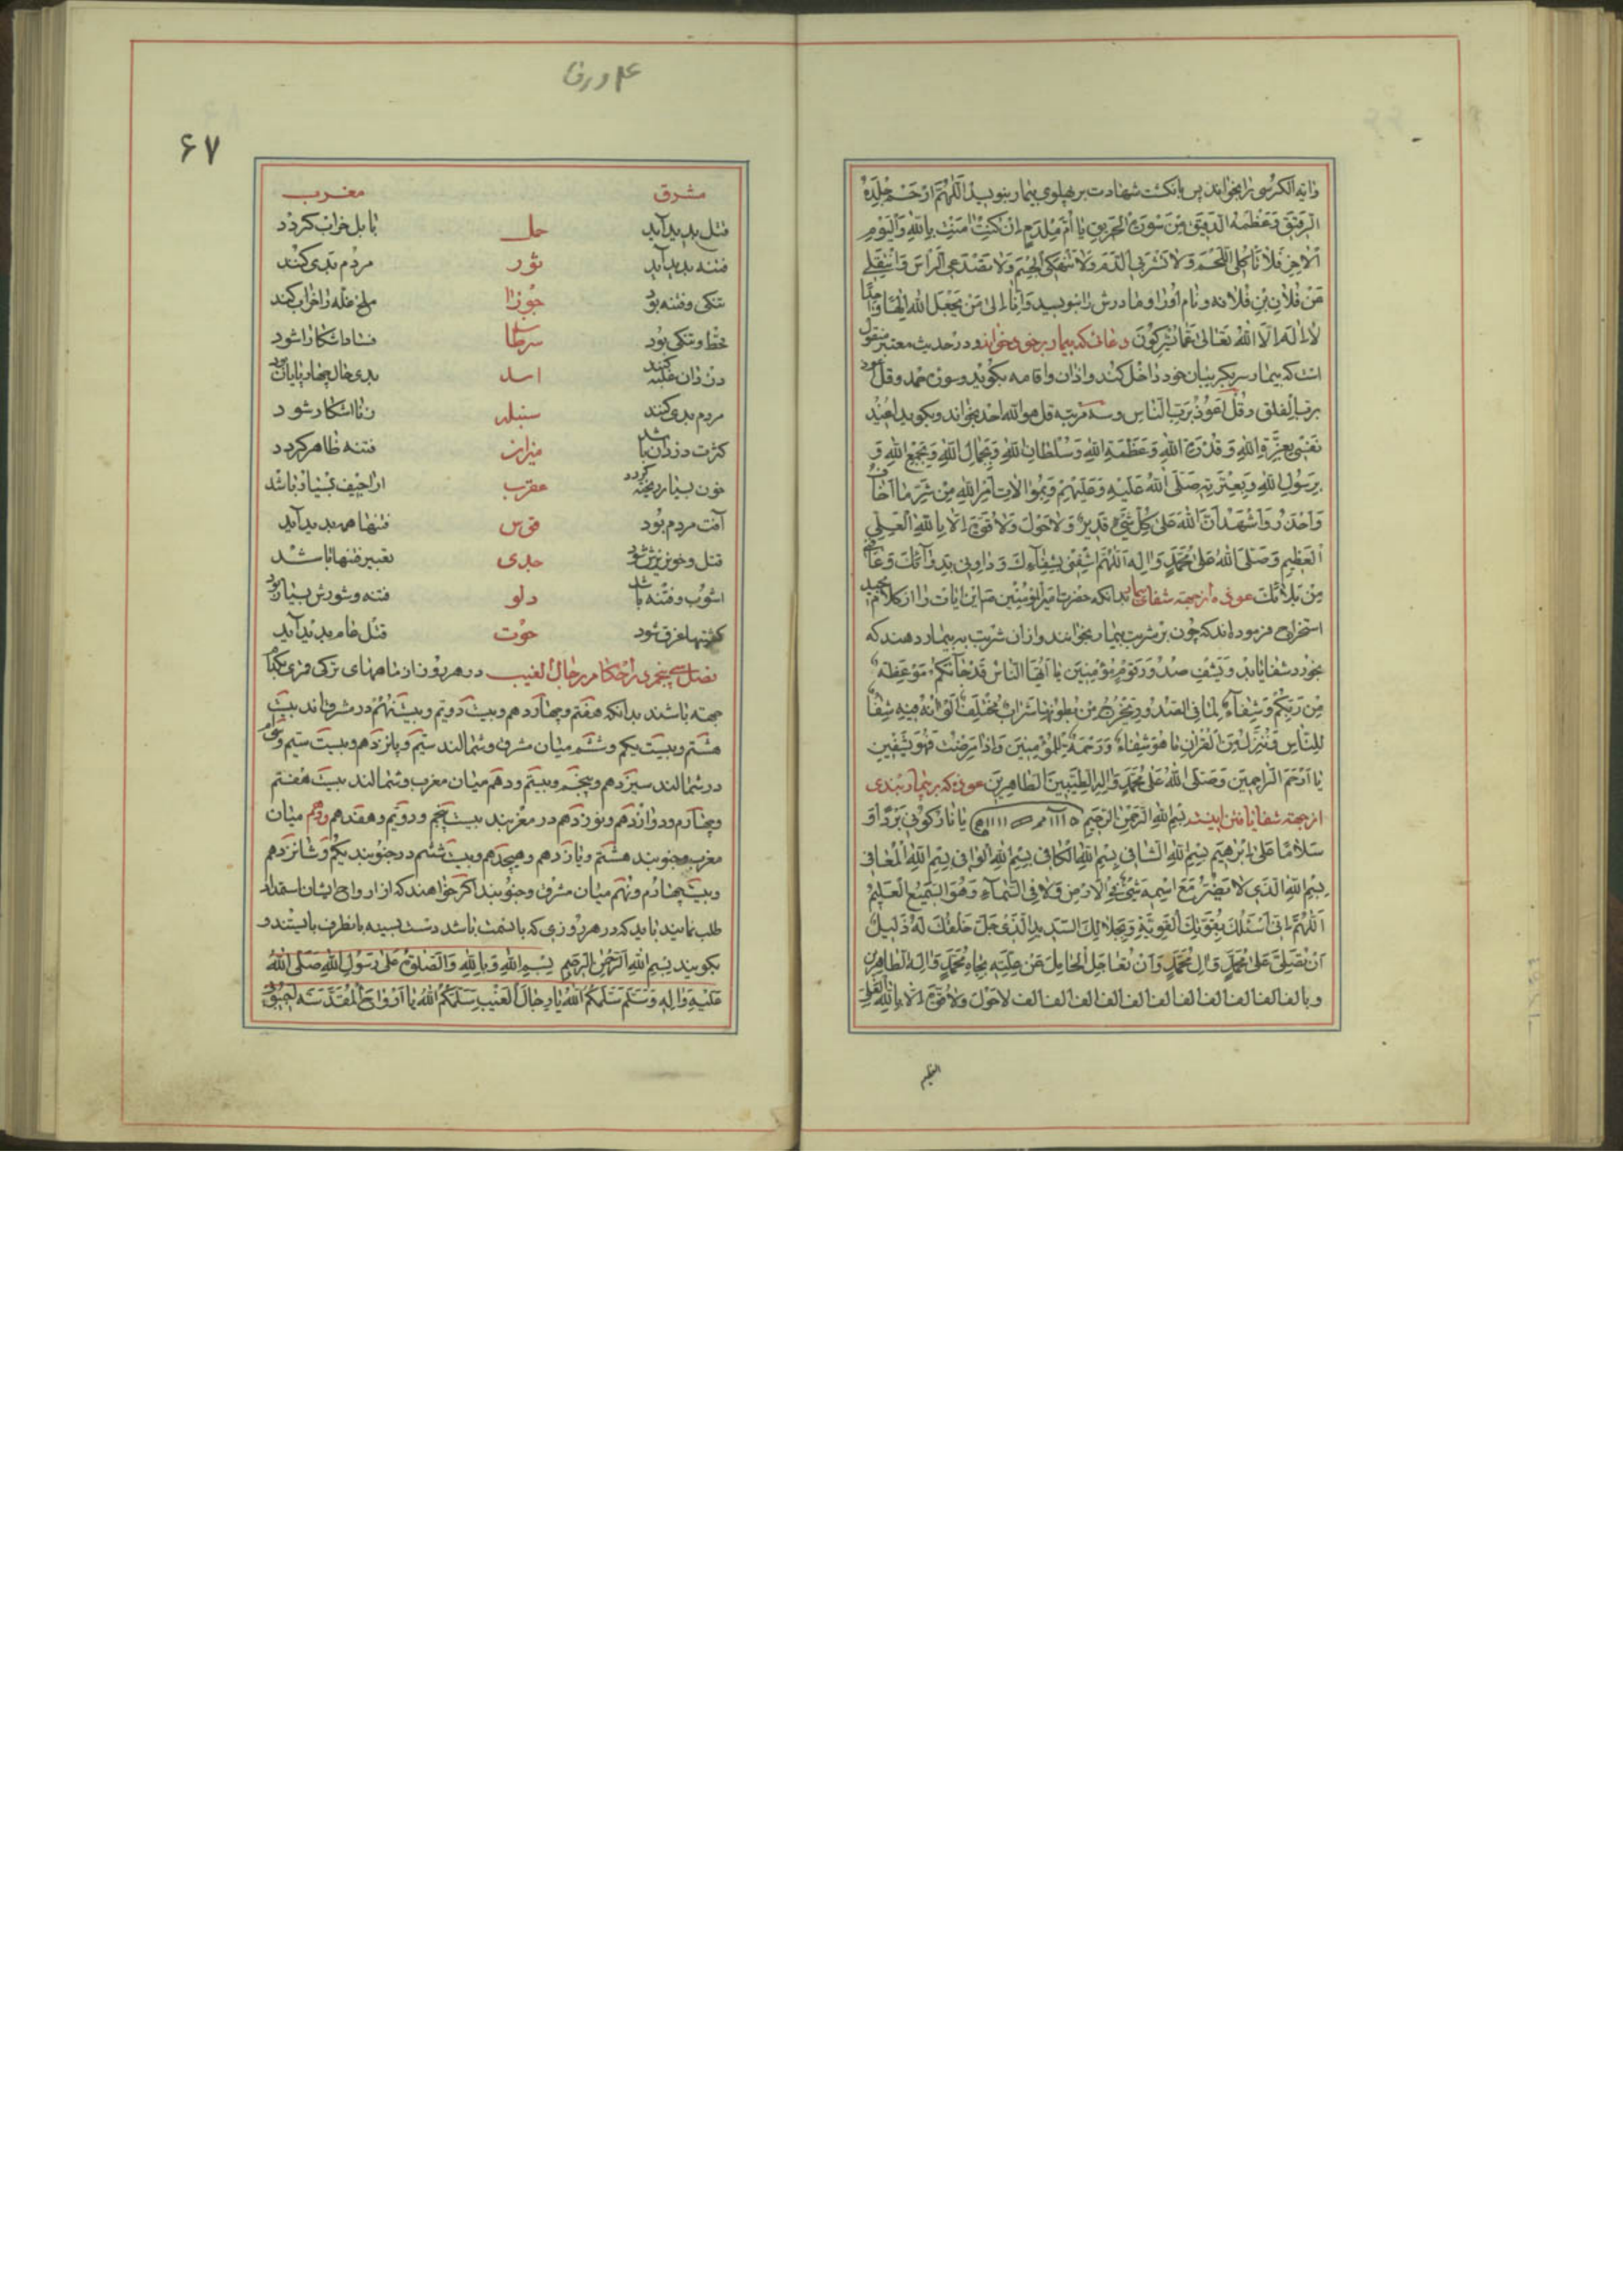 وایة الکرسی را بخوانند پس بانکشت شهادت بر پهلوی بیمار بنویسد اَللّهُمَّ ارْحَمْ جِلْدَهُ
الرَّقیقَ وَعَظْمَهُ الدَّقیقَ مِنْ سَوْرَةِ الْحَریقِ یا اُمَّ مِلْدَمٍ اِنْ کُنْتِ اٰمَنْتِ بِاللّهِ وَالْیَوْمِ
الْاٰخِرِ فَلا تَاْکُلِی اللَّحْمَ وَلا تَشْرَبِی الدَّمَ وَلا تَنْهَکِی الْجِسْمَ وَلا تُصَدِّعِی الرَّأْسَ وَانْتَقِلی
عَنْ فُلانِ بْنِ فُلانَه و نام او را و مادرش را بنویسد اِلیٰ مَنْ یَجْعَلُ مَعَ اللّهِ اِلٰهًا
لا اِلٰهَ اِلَّا اللّهُ تَعٰالیٰ عَمّا یُشْرِکُونَ دعائی که بیمار بر خود بخواند و در حدیث معتبر منقول
است که بیمار سر بگریبان خود داخل کند و اذان و اقامه بکوید و سوره حمد و قل اعوذ
برب الفلق و قُلْ اَعُوذُ بِرَبِّ النّاسِ و سه مرتبه قل هو الله احد بخواند و بکوید اُعیذُ
نَفْسی بِعِزَّةِ اللّهِ وَ قُدْرَةِ اللّهِ وَ عَظَمَةِ اللّهِ وَ سُلْطانِ اللّهِ وَ بِجَمالِ اللّهِ وَ بِجَمْعِ اللّهِ وَ
بِرَسُولِ اللّهِ وَ بِعِتْرَتِهِ صَلَّی اللّهُ عَلَیْهِ وَ عَلَیْهِمْ وَ بِوُلاةِ اَمْرِ اللّهِ مِنْ شَرِّ ما اَخافُ
وَ اَحْذَرُ وَ اَشْهَدُ اَنَّ اللّهَ عَلیٰ کُلِّ شَیْءٍ قَدیرٌ وَ لا حَوْلَ وَ لا قُوَّةَ اِلّا بِاللّهِ الْعَلِیِّ
الْعَظیمِ وَ صَلَّی اللّهُ عَلیٰ مُحَمَّدٍ وَ اٰلِهِ اَللّهُمَّ اشْفِنی بِشِفائِکَ وَ داوِنی بِدَوائِکَ وَ عافِنی
مِنْ بَلائِکَ عوذه از جهة شفای بیمار بدانکه حضرت امیر المؤمنین ص این ایات را از کلام مجید
استخراج فرموده اند که چون بر شربت بیمار بخوانند و از ان شربت به بیمار دهند که
بخورد شفا یابد وَ یَشْفِ صُدُورَ قَوْمٍ مُؤْمِنینَ یا اَیُّهَا النّاسُ قَدْ جاءَتْکُمْ مَوْعِظَةٌ
مِنْ رَبِّکُمْ وَ شِفاءٌ لِما فِی الصُّدُورِ یَخْرُجُ مِنْ بُطُونِها شَرابٌ مُخْتَلِفٌ اَلْوانُهُ فیهِ شِفاءٌ
لِلنّاسِ وَ نُنَزِّلُ مِنَ الْقُرْاٰنِ ما هُوَ شِفاءٌ وَ رَحْمَةٌ لِلْمُؤْمِنینَ وَ اِذا مَرِضْتُ فَهُوَ یَشْفینِ
یا اَرْحَمَ الرّاحِمینَ وَ صَلَّی اللّهُ عَلیٰ مُحَمَّدٍ وَ اٰلِهِ الطَّیِّبینَ الطّاهِرینَ عوذه که بر بیمار بندی
از جهة شفا یافتن اینست بِسْمِ اللّهِ الرَّحْمٰنِ الرَّحیمِ یا نارُ کُونی بَرْدًا وَ
سَلامًا عَلیٰ اِبْرٰهیمَ بِسْمِ اللّهِ الشّافی بِسْمِ اللّهِ الْکافی بِسْمِ اللّهِ الْوافی بِسْمِ اللّهِ الْمُعافی
بِسْمِ اللّهِ الَّذی لا یَضُرُّ مَعَ اسْمِهِ شَیْءٌ فِی الْاَرْضِ وَ لا فِی السَّماءِ وَ هُوَ السَّمیعُ الْعَلیمُ
اَللّهُمَّ اِنّی اَسْئَلُکَ بِقُوَّتِکَ الْقَوِیَّةِ وَ بِجَلالِکَ السَّدیدِ الَّذی جَلَّ خَلْقُکَ لَهُ ذَلیلٌ
اَنْ تُصَلِّیَ عَلیٰ مُحَمَّدٍ وَ اٰلِ مُحَمَّدٍ وَ اَنْ تُعاجِلَ الْحامِلَ عَنْ عِلَّتِهِ بِجاهِ مُحَمَّدٍ وَ اٰلِهِ الطّاهِرینَ
و بالف الف الف الف الف الف الف الف الف الف لا حَوْلَ وَ لا قُوَّةَ اِلّا بِاللّهِ الْعَلِیِّ
العظیم
۴ ورق
۶۷
مشرق مغرب
قتل پدید آید حمل بابل خراب کردد
فتنه پدید آید ثور مردم بدی کنند
تنکی و فتنه بود جوزا ملخ غله را خراب کند
قحط و تنکی بود سرطان فساد اشکارا شود
دزدان غلبه کنند اسد بدی حال چهار پایان بود
مردم بدی کنند سنبله زنا اشکار شود
کثرت دزدان باشد میزان فتنه ظاهر کردد
خون بسیار ریخته کردد عقرب اراجیف بسیار باشد
آفت مردم بود قوس فتنها پدید آید
قتل و خون ریزش شود جدی تعبیر فتنها باشد
اشوب و فتنه باشد دلو فتنه و شورش بسیار بود
کشتیها غرق شود حوت قتل عام پدید آید
فصل پنجم در احکام رجال الغیب در هر روز از ماههای ترکی و فرس بکدام
جهة باشند بدانکه هفتم و چهاردهم و بیست دویم و بیست نهم در مشرق اند بیست
هشتم و بیست یکم و ششم میان مشرق و شمالند سیّم و پانزدهم و بیست سیم و سی ام
در شمالند سیزدهم و پنجم و بیستم و دهم میان مغرب و شمالند بیست هفتم
و چهارم و دوازدهم و نوزدهم در مغربند بیست پنجم و دویم و هفدهم و دهم میان
مغرب و جنوبند هشتم و یازدهم و هیجدهم و بیست ششم در جنوبند یکم و شانزدهم
و بیست چهارم و نهم میان مشرق و جنوبند اکر خواهند که از ارواح ایشان استمداد
طلب نمایند باید که در هر روزی که بانسمت باشند دست بسینه بانطرف بایستند و
بکویند بِسْمِ اللّهِ الرَّحْمٰنِ الرَّحیمِ بِسْمِ اللّهِ وَ بِاللّهِ وَ الصَّلوٰةُ عَلیٰ رَسُولِ اللّهِ صَلَّی اللّهُ
عَلَیْهِ وَ اٰلِهِ وَ سَلَّمَ سَلَّمَکُمُ اللّهُ یا رِجالَ الْغَیْبِ سَلَّمَکُمُ اللّهُ یا اَرْواحَ الْمُقَدَّسَةِ اَجیبُونی